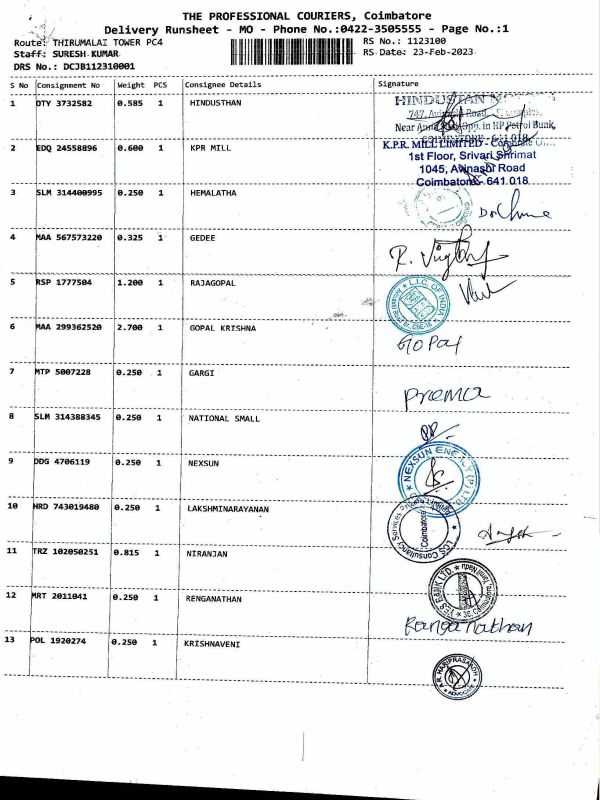 THE PROFESSIONAL COURIERS, Coimbatore
Delivery Runsheet - MO - Phone No.:0422-3505555 - Page No.:1
Route: THIRUMALAI TOWER PC4 RS No.: 1123100
Staff: SURESH KUMAR RS Date: 23-Feb-2023
DRS No.: DCJB112310001
S No Consignment No Weight PCS Consignee Details Signature
1 OTY 3732582 0.585 1 HINDUSTHAN
HINDUSTAN
747, Avinashi Road
Near Anna Opp. in HP Petrol Bunk,
641 018
2 EDQ 24558896 0.600 1 KPR MILL
K.P.R. MILL LIMITED - Corporate
1st Floor, Srivari Shrimat
1045, Avinashi Road
Coimbatore - 641 018
3 SLM 314400995 0.250 1 HEMALATHA
4 MAA 567573220 0.325 1 GEDEE
5 RSP 1777504 1.200 1 RAJAGOPAL
L.I.C. OF INDIA
6 MAA 299362520 2.700 1 GOPAL KRISHNA
GOPAL
7 MTP 5007228 0.250 1 GARGI
Prema
8 SLM 314388345 0.250 1 NATIONAL SMALL
9 DDG 4706119 0.250 1 NEXSUN
NEXSUN ENERGY (P) LTD
10 HRD 743019480 0.250 1 LAKSHMINARAYANAN
LCS Consultancy Services Private Limited
Coimbatore
11 TRZ 102050251 0.815 1 NIRANJAN
12 MRT 2011041 0.250 1 RENGANATHAN
Ranganathan
13 POL 1920274 0.250 1 KRISHNAVENI
HARIPRASANDH
ADVOCATE